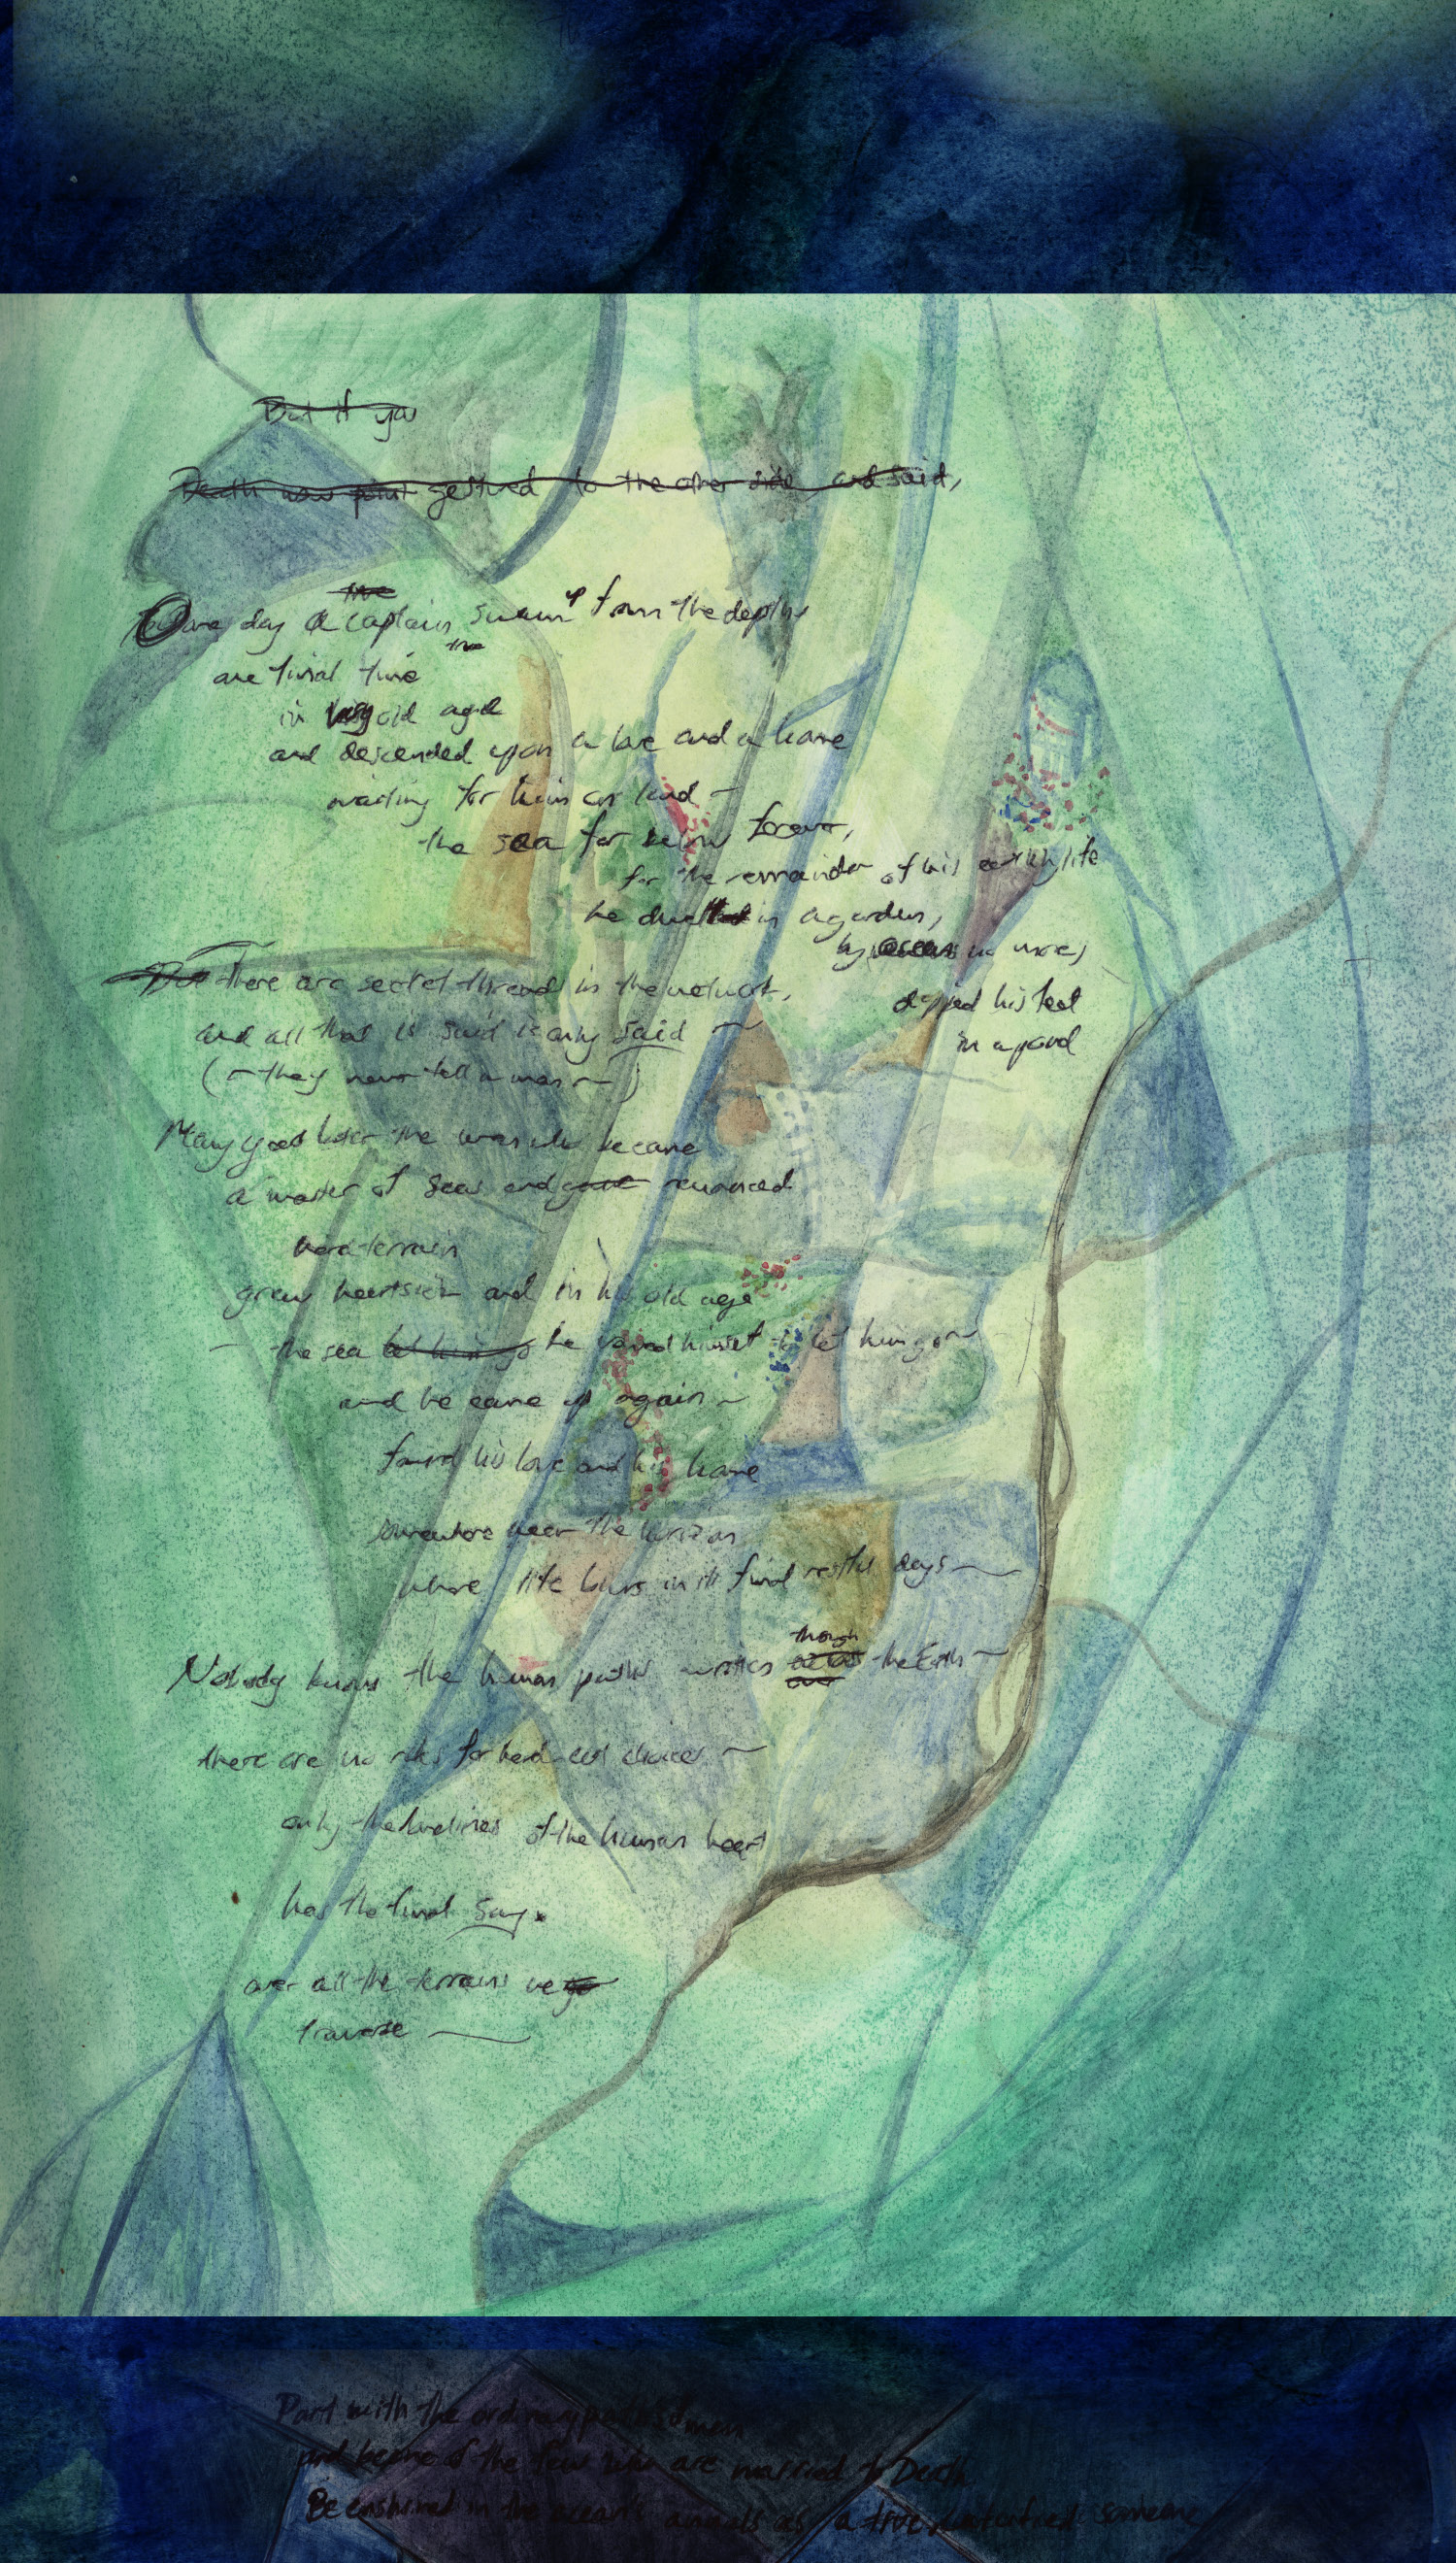 But if you
Death now point gestured to the other side and said,
the
One day a captain swam up from the depths
the
one final time
in very old age
and descended upon a love and a home
waiting for him on land —
the sea far below forever,
for the remainder of his earthly life
he dwelled in a garden,
by oceans no more,
dipped his feet
in a pond
But there are secret threads in the
and all that is said is only said ~
(~ they never tell a man ~)
Many years later the man who became
a master of seas and renounced
hard terrain
grew heartsick and in his old age
the sea let him go he to let him go ~
and he came up again ~
found his love and his home
somewhere near the horizon
where life blurs in its final restful days ~
though
Nobody knows the human paths across the Earth ~
over
there are no rules for hard-cut choices ~
only the of the human heart
has the final say.
over all the terrains we go
traverse —
Part with the ordinary paths of men
and become of the few who are married to Death
Be enshrined in the ocean's annals as a true someone